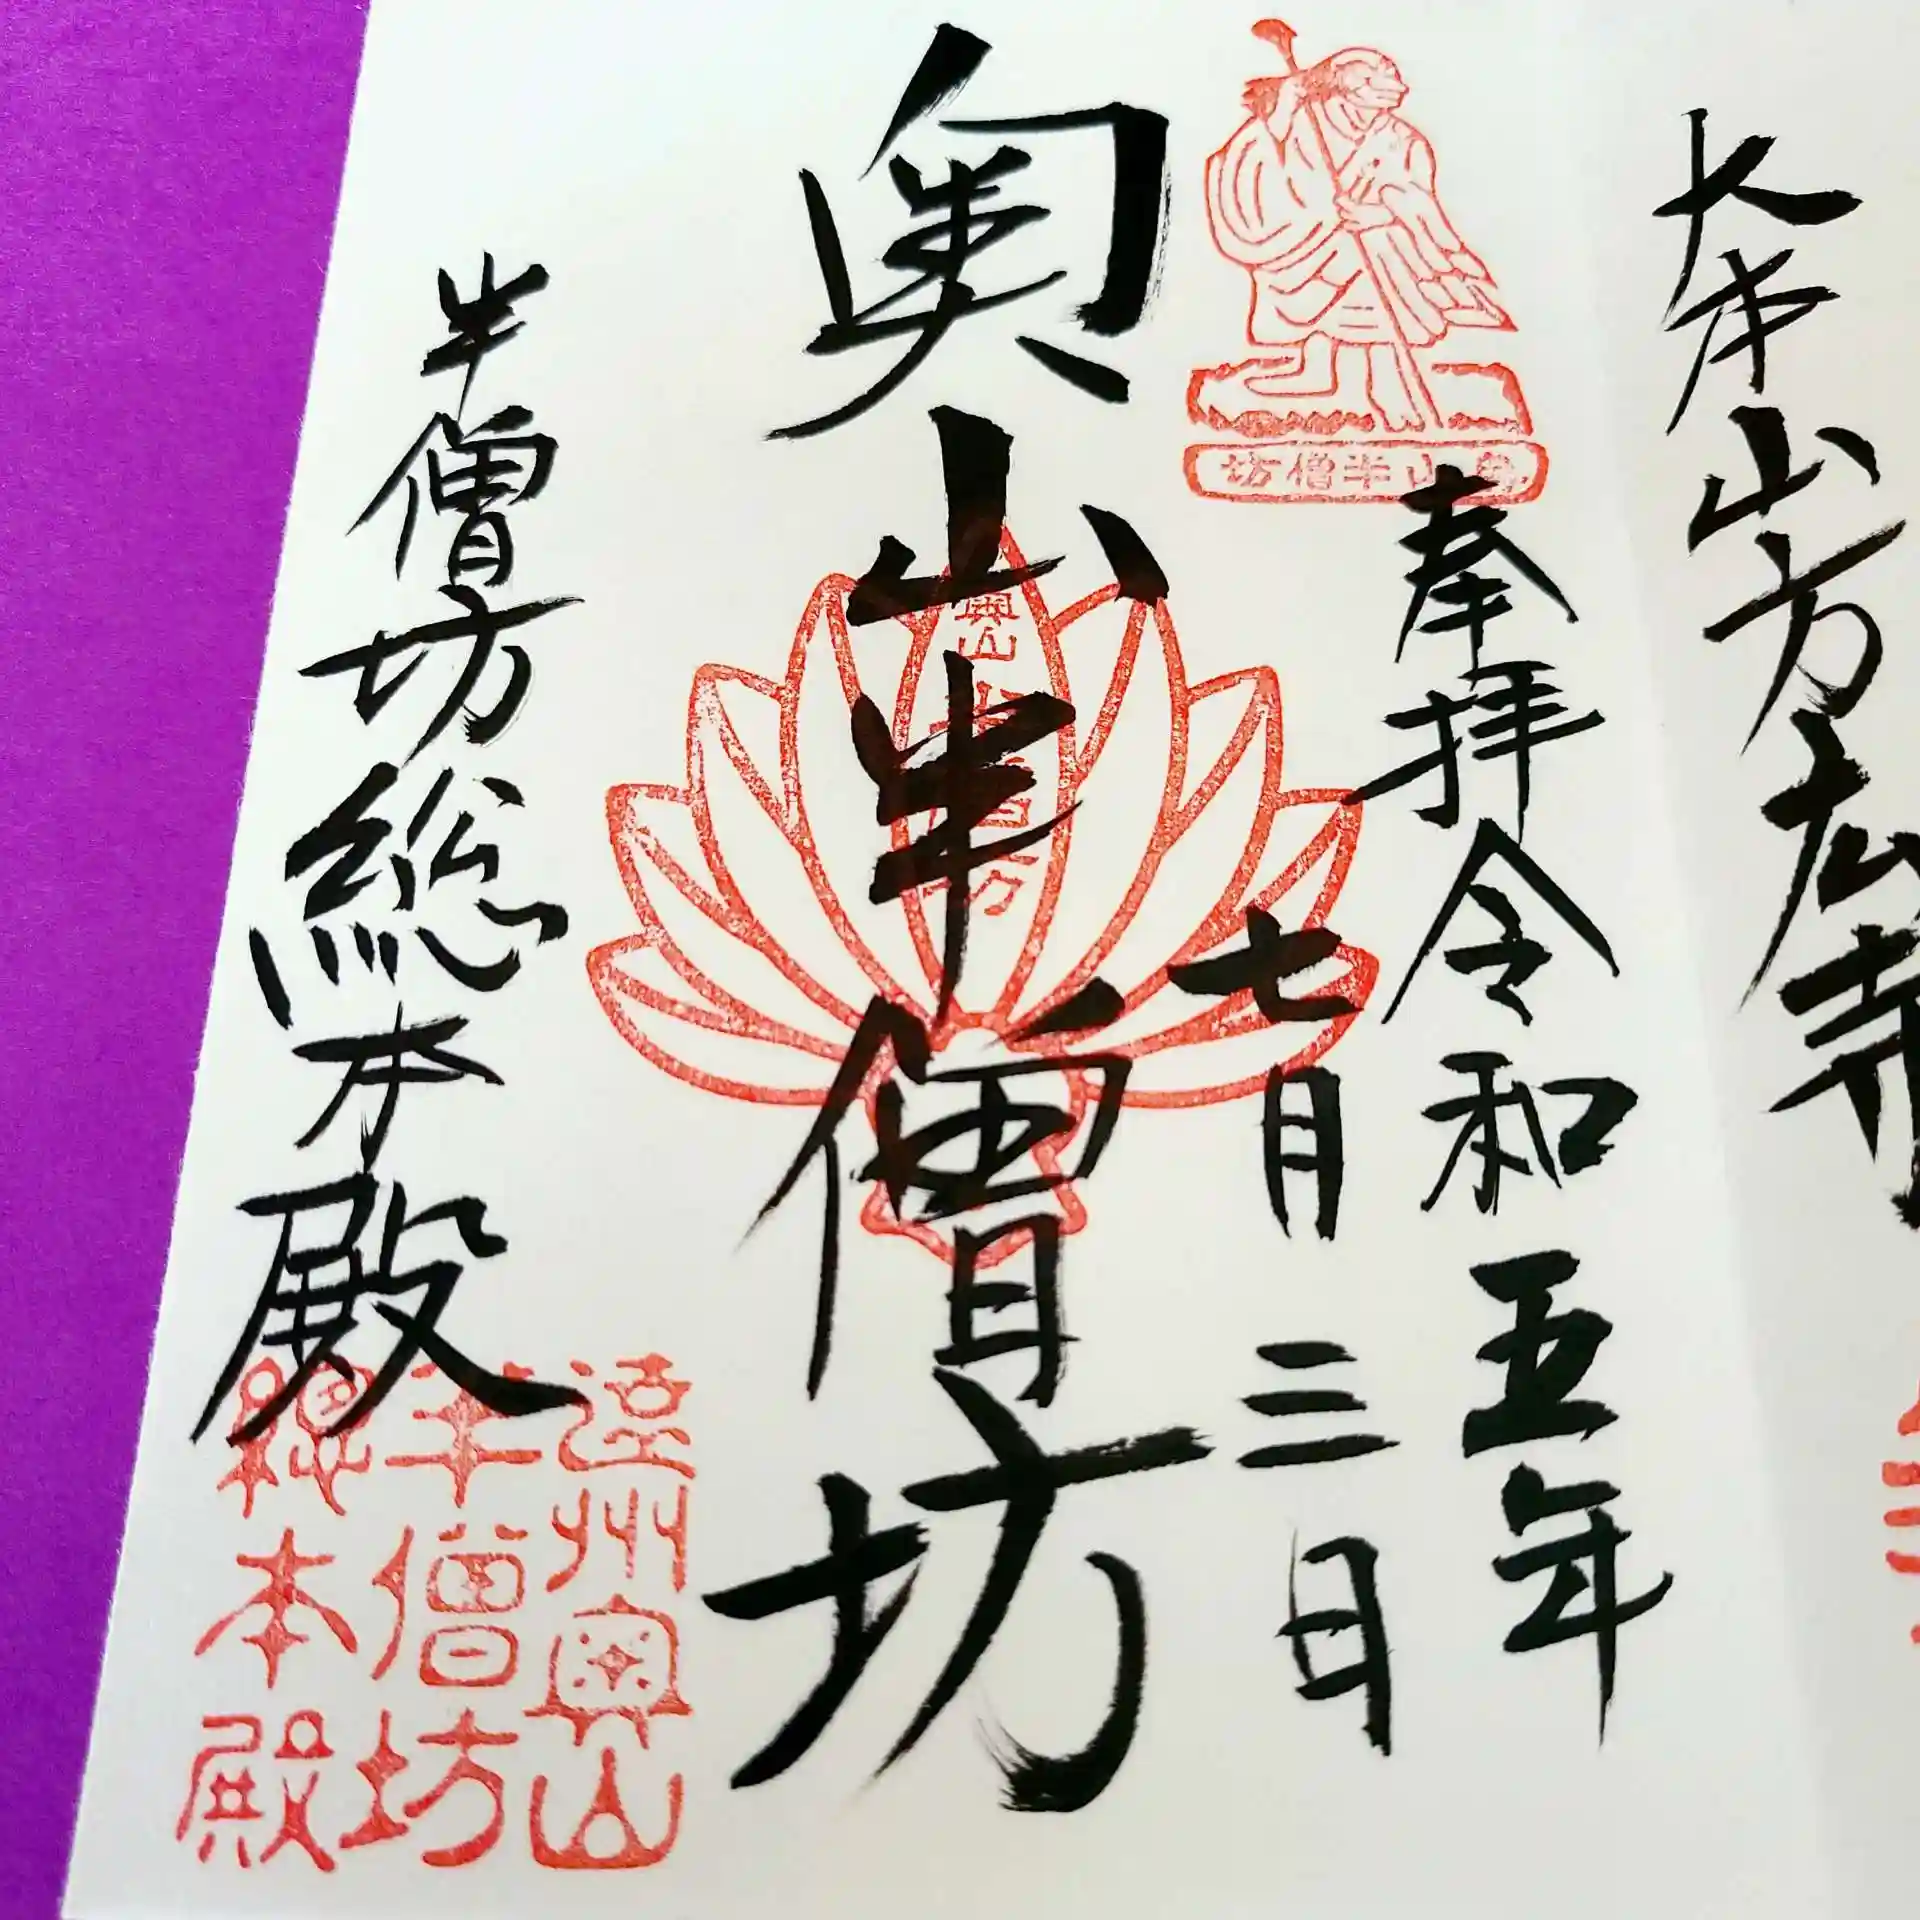 大本山方広寺
奉拝令和五年
七月三日
奥山半僧坊
奥山半僧坊
奥山半僧坊
半僧坊総本殿
遠州奥山
半僧坊
總本殿